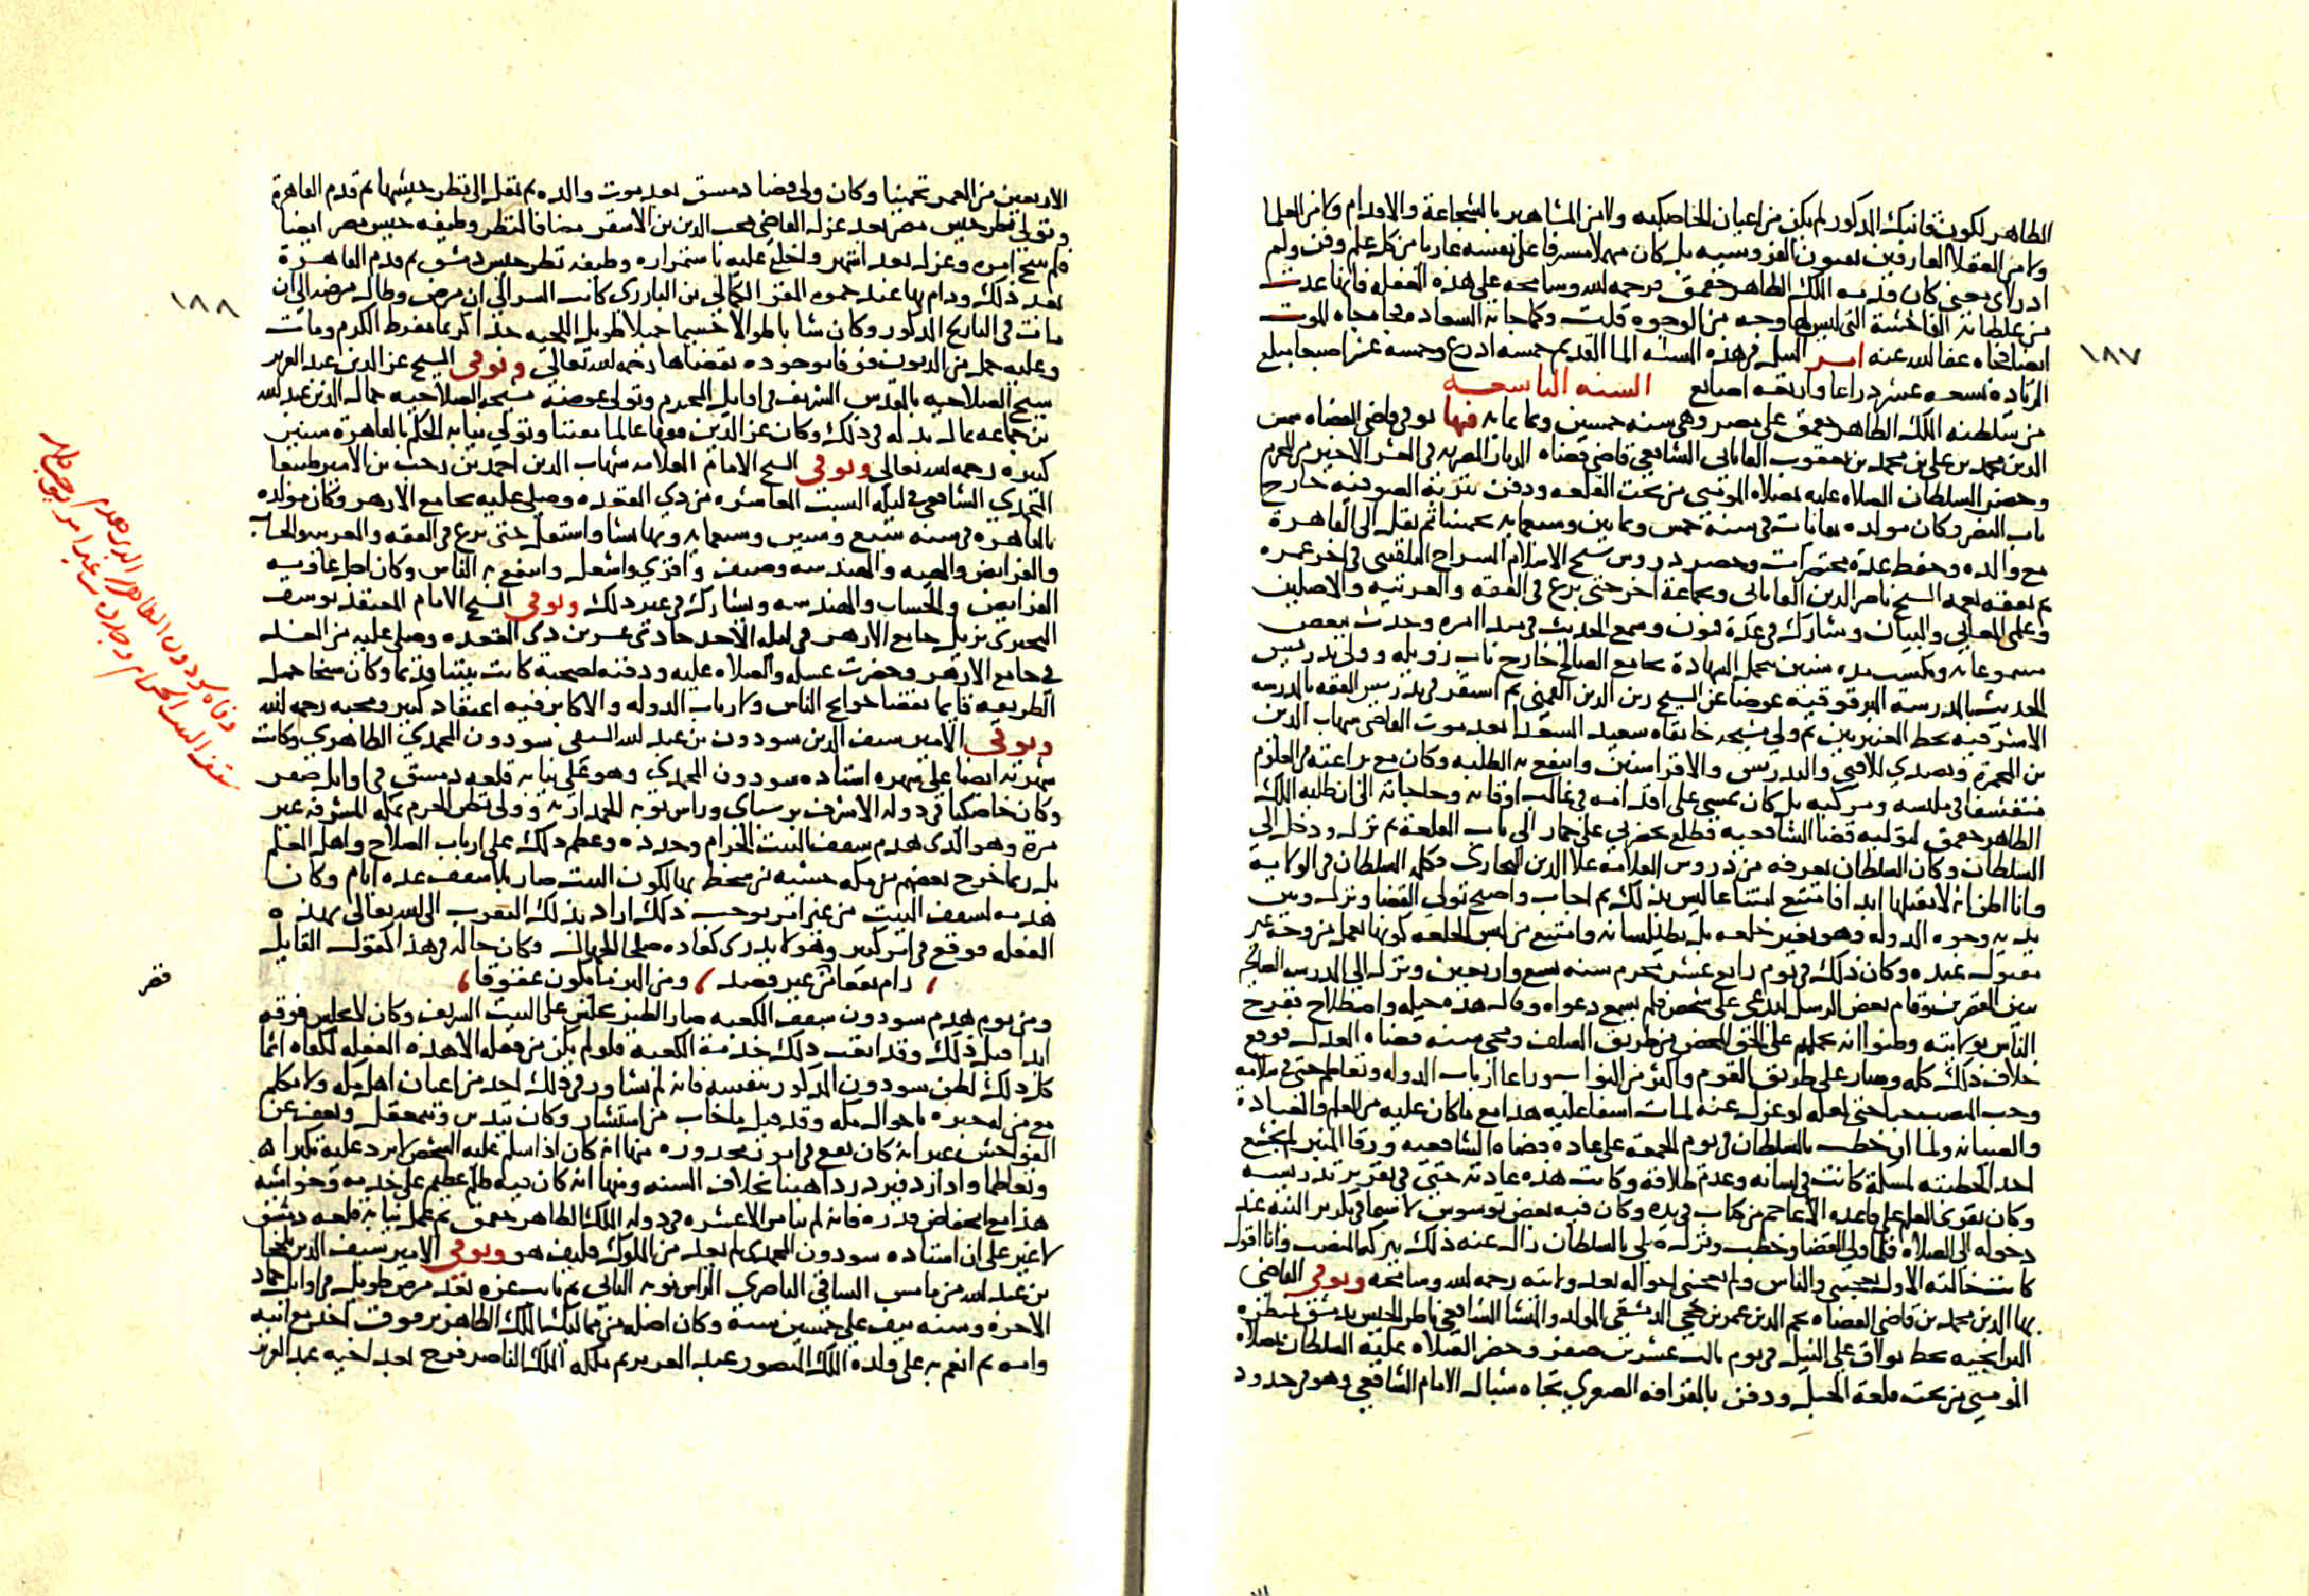 الظاهر لكون قانبك المذكور لم يكن من اعيان الخاصكيه ولا من المشاهير بالشجاعة والاقدام ولا من العلما
ولا من العقلا العارفين بفنون الفروسيه بل كان مهملا مسرفا على نفسه عاريا من كل علم وفن ولم
ادر اى يعنى كان قدمه الملك الظاهر جقمق فرحمه الله وسامحه على هذه الفعله فانها عدت
من غلطاته الفاحشة التى ليس لها وجه من الوجوه قلت وكما جاته السعاده فجاه جاه الموت
ايضا فجاه عفا الله عنه امر النيل فى هذه السنه الما القديم خمسه اذرع وخمسه عشر اصبعا مبلغ
الزياده تسعه عشر دراعا واربعه اصابع السنه التاسعه
من سلطنه الملك الظاهر جقمق على مصر وهى سنه خمسين وثمانمايه فيها توفى قاضى القضاه شمس
الدين محمد بن على بن محمد بن يعقوب القاياتى الشافعى قاضى قضاه الديار المصريه فى العشر الاخير من المحرم
وحضر السلطان الصلاه عليه بمصلاه المومنى من تحت القلعه ودفن بتربة الصوفيه خارج
باب النصر وكان مولده بقايات فى سنة خمس وثمانين وسبعمايه تخمينا ثم نقل الى القاهرة
مع والده وحفظ عدة مختصرات وحضر دروس شيخ الاسلام السراج البلقينى فى اخر عمره
ثم تفقه بعمه الشيخ ناصر الدين القاياتى وبجماعة اخر حتى برع فى الفقه والعربيه والاصلين
وعلمى المعانى والبيان وشارك فى عدة فنون وسمع الحديث فى مبدا امره وحدث ببعض
مسموعاته وتكسب مده سنين بتحمل الشهادة بجامع الصالح خارج باب زويله وولى تدريس
الحديث بالمدرسة البرقوقيه عوضا عن الشيخ زين الدين القمنى ثم استقر فى تدريس الفقه بالمدرسه
الاشرفيه بخط العنبريين ثم ولى مشيخه خانقاه سعيد السعدا بعد موت القاضى شهاب الدين
بن المحمرة وتصدى للافتى والتدريس والاقرا سنين وانتفع به الطلبه وكان مع براعته فى العلوم
متقشفا فى ملبسه ومركبه بل كان يمشى على اقدامه فى غالب اوقاته وحاجاته الى ان طلبه الملك
الظاهر جقمق ليوليه قضا الشافعيه فطلع بحضرتى على حمار الى باب القلعة ثم نزل ودخل الى
السلطان وكان السلطان يعرفه من دروس العلامه علا الدين البخارى فكلمه السلطان فى الولاية
وانا اظن انه لا يقبلها ابدا فامتنع امتناعا ليس بذلك ثم اجاب واصبح تولى القضا ونزل وبين
يديه وجوه الدوله وهو بغير خلعه بل بطيلسانه وامتنع من لبس الخلعه كونها تعمل من وجه غير
مقبول عنده وكان ذلك فى يوم رابع عشر محرم سنه تسع واربعين ونزل الى المدرسه الصالحيه
بين القصرين وقام بعض الرسل ليدعى على شخص فلم يسمع دعواه وقال هذه حيله واصطلاح ففرح
الناس بولايته وظنوا انه يحملهم على الحق المحض من طريق السلف ومحى سنه قضاه العدل فوقع
خلاف ذلك كله وصار على طريق القوم واكثر من النواب وراعا ارباب الدوله وتعاظم حتى فى سلامه
وحب المنصب حبا حتى لعله لو عزل عنه لمات اسفا عليه هذا مع ما كان عليه من العلم والعبادة
والصيانه ولما ان خطب بالسلطان فى يوم الجمعه على عادة قضاة الشافعيه ورقا المنبر لم يخشع
احد لخطبته لمسكة كانت فى لسانه وعدم طلاقة وكانت هذه عادته حتى فى تقرير تدريسه
وكان يقوى العلم على قاعده الاعاجم من كتاب فى يده وكان فيه بعض توسوس لا سيما فى تكرير النيه عند
دخوله الى الصلاه فلما ولى القضا وخطب ونزل صلى بالسلطان زال عنه ذلك ببركه المنصب وانا اقول
كانت حالته الاولى تعجبنى والناس ولم تعجبنى احواله بعد ولايته رحمه الله وسامحه وتوفى القاضى
بها الدين محمد بن قاضى القضاه نجم الدين عمر بن حجى الدمشقى المولد والمنشا الشافعى ناظر الجيش بدمشق بمنظره
البرابخيه بخط بولاق على النيل فى يوم ثالث عشرين صفر وحضر الصلاه عليه السلطان بمصلاه
المومنى من تحت قلعة الجبل ودفن بالقرافه الصغرى تجاه شباك الامام الشافعى وهو فى حدود
١٨٧
الاربعين من العمر تخمينا وكان ولى قضا دمشق بعد موت والده ثم نقل الى نظر جيشها ثم قدم القاهرة
وتولى نظر جيش مصر بعد عزل القاضى محب الدين بن الاشقر مضافا لنظر وظيفه جيش مصر ايضا
فلم ينتج امره وعزل بعد اشهر واخلع عليه باستمراره وظيفه نظر جيش دمشق ثم قدم القاهرة
بعد ذلك ودام بها عند حموه المقر الكمالى بن البارزى كاتب السر الى ان مرض وطال مرضه الى ان
مات فى التاريخ المذكور وكان شابا طوالا جسيما جميلا طويل اللحيه جدا كريما مفرط الكرم ومات
وعليه جمل من الديون فوفا بوجوده بقضاها رحمه الله تعالى وتوفى الشيخ عز الدين عبد العزيز
شيخ الصلاحيه بالقدس الشريف فى اوايل المحرم وتولى عوضه مشيخه الصلاحيه جمال الدين عبد الله
بن جماعه بمال بذله فى ذلك وكان عز الدين فقيها عالما مفتنا وتولى نيابه الحكم بالقاهرة سنين
كثيره رحمه الله تعالى وتوفى الشيخ الامام العلامه شهاب الدين احمد بن رجب بن الامير طيبغا
المجدى الشافعى فى ليله السبت العاشره من ذى القعده وصلى عليه بجامع الازهر وكان مولده
بالقاهره فى سنه سبع وستين وسبعمايه وبها نشا واشتغل حتى برع فى الفقه والعربيه والحساب
والفرايض والهيه والهندسه وصنف واقرى واشغل وانتفع به الناس وكان اجل علومه
الفرايض والحساب والهندسه ويشارك فى غير ذلك وتوفى الشيخ الامام المعتقد يوسف
البحيرى نزيل جامع الازهر فى ليله الاحد حادى عشرين ذى القعده وصلى عليه من الغد
فى جامع الازهر وحضرت غسله والصلاه عليه ودفنه لصحبة كانت بيننا قديما وكان شيخا جميل
الطريقه قايما بقضا حوايج الناس ولارباب الدوله والاكابر فيه اعتقاد كبير ومحبه رحمه الله
وتوفى الامير سيف الدين سودون بن عبد الله السيفى سودون المحمدى الظاهرى وكانت
شهرته ايضا على شهره استاذه سودون المحمدى وهو على نيابه قلعه دمشق فى اوايل صفر
وكان خاصكيا فى دوله الاشرف برسباى وراس نوبه الجمداريه وولى نظر الحرم بمكه المشرفه غير
مرة وهو الذى هدم سقف البيت الحرام وجدده وعظم ذلك على ارباب الصلاح واهل العلم
بل ربما خرج بعضهم من مكه خشيه من سخط بها لكون البيت صار بلا سقف عده ايام وكان
هدمه لسقف البيت من غير امر يوجب ذلك اراد بذلك التقرب الى الله تعالى بهذه
الفعله فوقع فى امر كبير وهو لا يدرى كعاده صلحا الجهال وكان حاله فى هذا كقول القايل
، رام نفعا فضر من غير قصد ، ومن البر ما يكون عقوقا ،
ومن يوم هدم سودون سقف الكعبه صار الطير يجلس على البيت الشريف وكان لا يجلس فوقه
ابدا قبل ذلك وقد اتعب ذلك خدمة الكعبه فلو لم يكن من فعله الا هذه الفعله لكفاه اثما
كل ذلك لظن سودون المذكور بنفسه فانه لم يشاور فى ذلك احد من اعيان اهل مكه ولا تكلم
مع من له خبره باحوال مكه وقد قيل ما خاب من استشار وكان يتدين وتمعقل ويعف عن
الفواحش غير انه كان يقع فى امور محذوره منها انه كان اذا سلم عليه الشخص لا يرد عليه تكبرا
وتعاظما واذا رد فيرد ردا هينا بخلاف السنه ومنها انه كان فيه ظلم عظيم على خدمه وحواشيه
هذا مع انخفاض قدره فانه لم يتامر الا عشره فى دوله الملك الظاهر جقمق ثم عمل نيابه قلعه دمشق
لا غير على ان استاذه سودون المحمدى لم يعد من الملوك فكيف هو وتوفى الامير سيف الدين يلخجا
بن عبد الله من مامش الساقى الناصرى الراس نوبه الثانى ثم نايب غزه بعد مرض طويل فى اوايل جماد
الاخره وسنه نيف على خمسين سنة وكان اصله من مماليك الملك الظاهر برقوق اخذ مع ابيه
وامه ثم انعم به على ولده الملك المنصور عبد العزيز ثم ملكه الملك الناصر فرج بعد اخيه عبد العزيز
١٨٨
وفاه سودون الظاهرى الذى هدم
سقف البيت الحرام وجدده